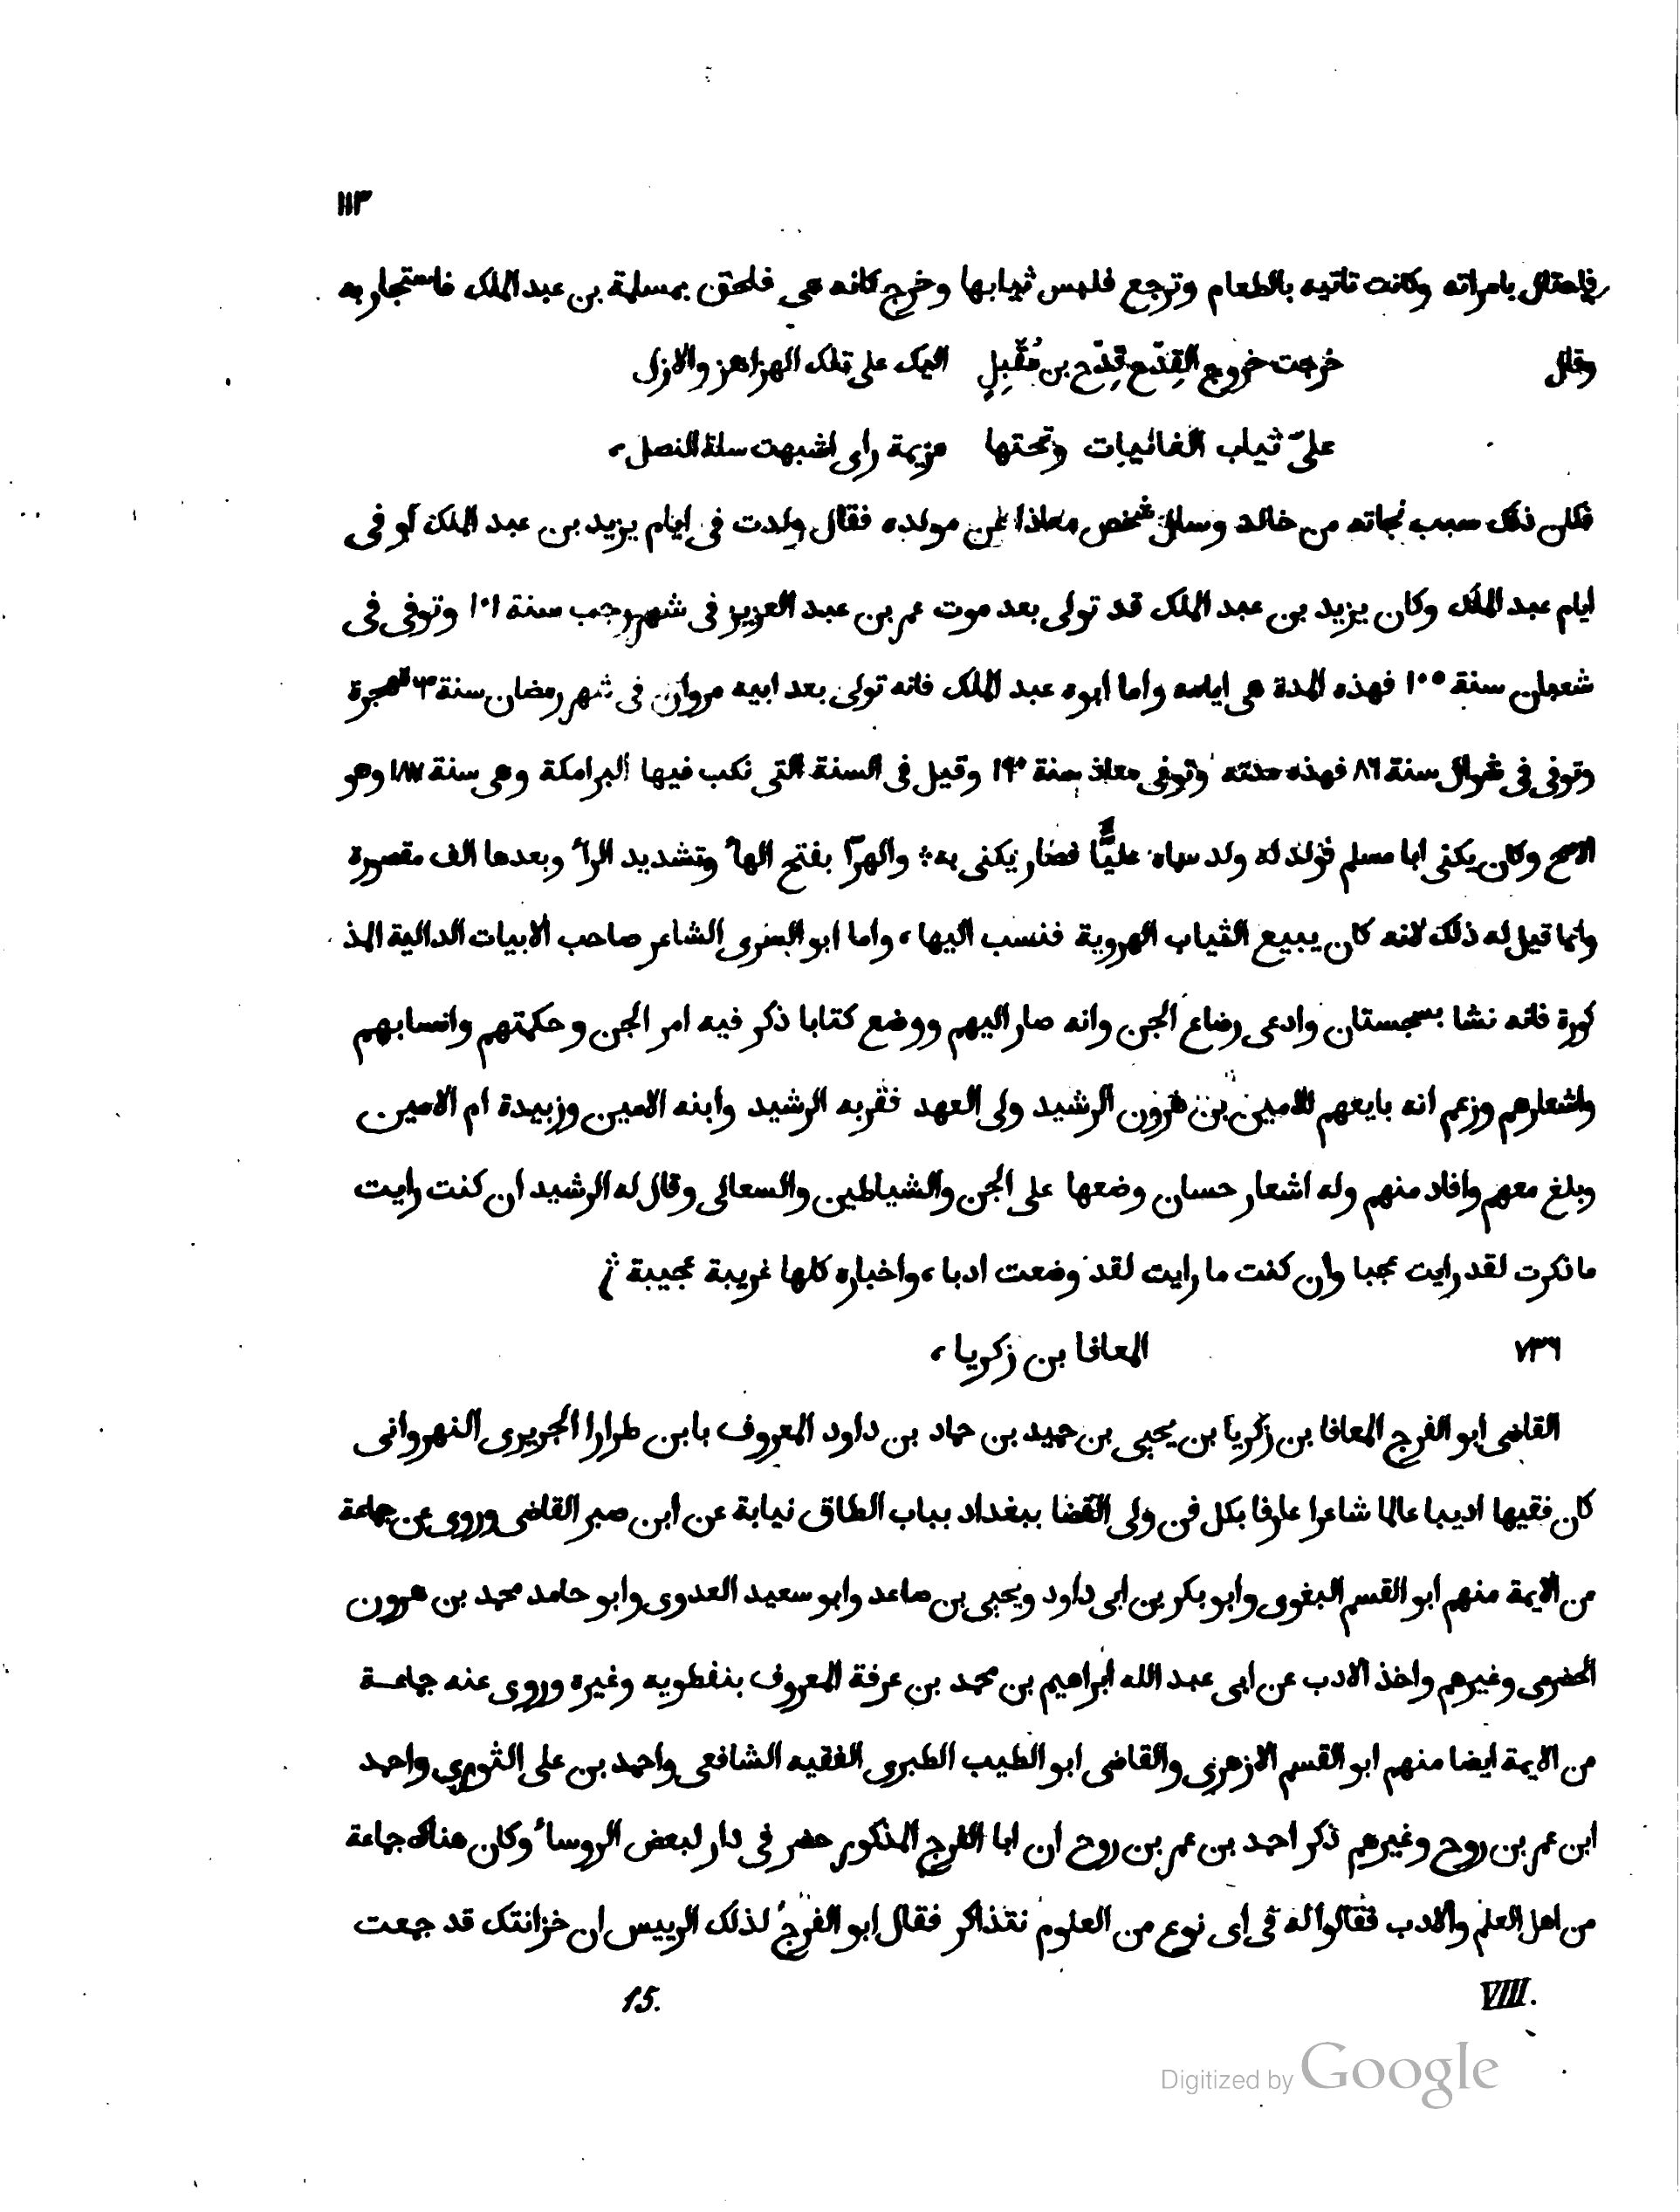 ١١٣
فاحتال بامراته وكانت تاتيه بالطعام وترجع فلبس ثيابها وخرج كانه هى فلحق بمسلمة بن عبد الملك فاستجار به
وقال خرجت خروج القِدّح قِدّح بن مُقْبِلِ اليك على تلك الهزاهز والازل
علىّ ثياب الغانيات وتحتها عزيمة راى اشبهت سلة النصل،
فكان ذلك سبب نجاته من خالد وسال شخص معاذا عن مولده فقال ولدت فى ايام يزيد بن عبد الملك او فى
ايام عبد الملك وكان يزيد بن عبد الملك قد تولى بعد موت عمر بن عبد العزيز فى شهر رجب سنة ١٠١ وتوفى فى
شعبان سنة ١٠٥ فهذه المدة هى ايامه واما ابوه عبد الملك فانه تولى بعد ابيه مروان فى شهر رمضان سنة للهجرة
وتوفى فى شوال سنة ٨٦ فهذه مدته وتوفى معاذ سنة ١٩٠ وقيل فى السنة التى نكب فيها البرامكة وهى سنة ١٨٧ وهو
الاصح وكان يكنى ابا مسلم فولد له ولد سماه عليًّا فصار يكنى به؛ والهرّا بفتح الهاء وتشديد الراء وبعدها الف مقصورة
وانما قيل له ذلك لانه كان يبيع الثياب الهروية فنسب اليها، واما ابو السرى الشاعر صاحب الابيات الدالية المذ
كورة فانه نشا بسجستان وادعى رضاع الجن وانه صار اليهم ووضع كتابا ذكر فيه امر الجن وحكمتهم وانسابهم
واشعارهم وزعم انه بايعهم للامين بن هرون الرشيد ولى العهد فقربه الرشيد وابنه الامين وزبيدة ام الامين
وبلغ معهم وافاد منهم وله اشعار حسان وضعها على الجن والشياطين والسعالى وقال له الرشيد ان كنت رايت
ما ذكرت لقد رايت عجبا وان كنت ما رايت لقد وضعت ادبا، واخباره كلها غريبة عجيبة
٧٣٦ المعافا بن زكريا،
القاضى ابو الفرج المعافا بن زكريا بن يحيى بن حميد بن حماد بن داود المعروف بابن طرارا الجريرى النهروانى
كان فقيها اديبا عالما شاعرا عارفا بكل فن ولى القضا ببغداد بباب الطاق نيابة عن ابن صبر القاضى وروى عن جماعة
من الايمة منهم ابو القسم البغوى وابو بكر بن ابى داود ويحيى بن صاعد وابو سعيد العدوى وابو حامد محمد بن هرون
الحضرمى وغيرهم واخذ الادب عن ابى عبد الله ابراهيم بن محمد بن عرفة المعروف بنفطويه وغيره وروى عنه جماعة
من الايمة ايضا منهم ابو القسم الازهرى والقاضى ابو الطيب الطبرى الفقيه الشافعى واحمد بن على الثورى واحمد
ابن عمر بن روح وغيرهم ذكر احمد بن عمر بن روح ان ابا الفرج المذكور حضر فى دار لبعض الروساء وكان هناك جماعة
من اهل العلم والادب فقالوا له فى اى نوع من العلوم نتذاكر فقال ابو الفرج لذلك الرييس ان خزانتك قد جمعت
VIII. 15.
Digitized by Google